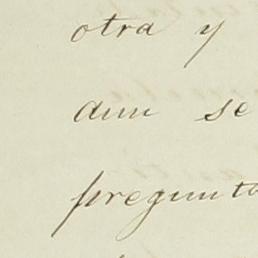 otra y
aun se
pregunto